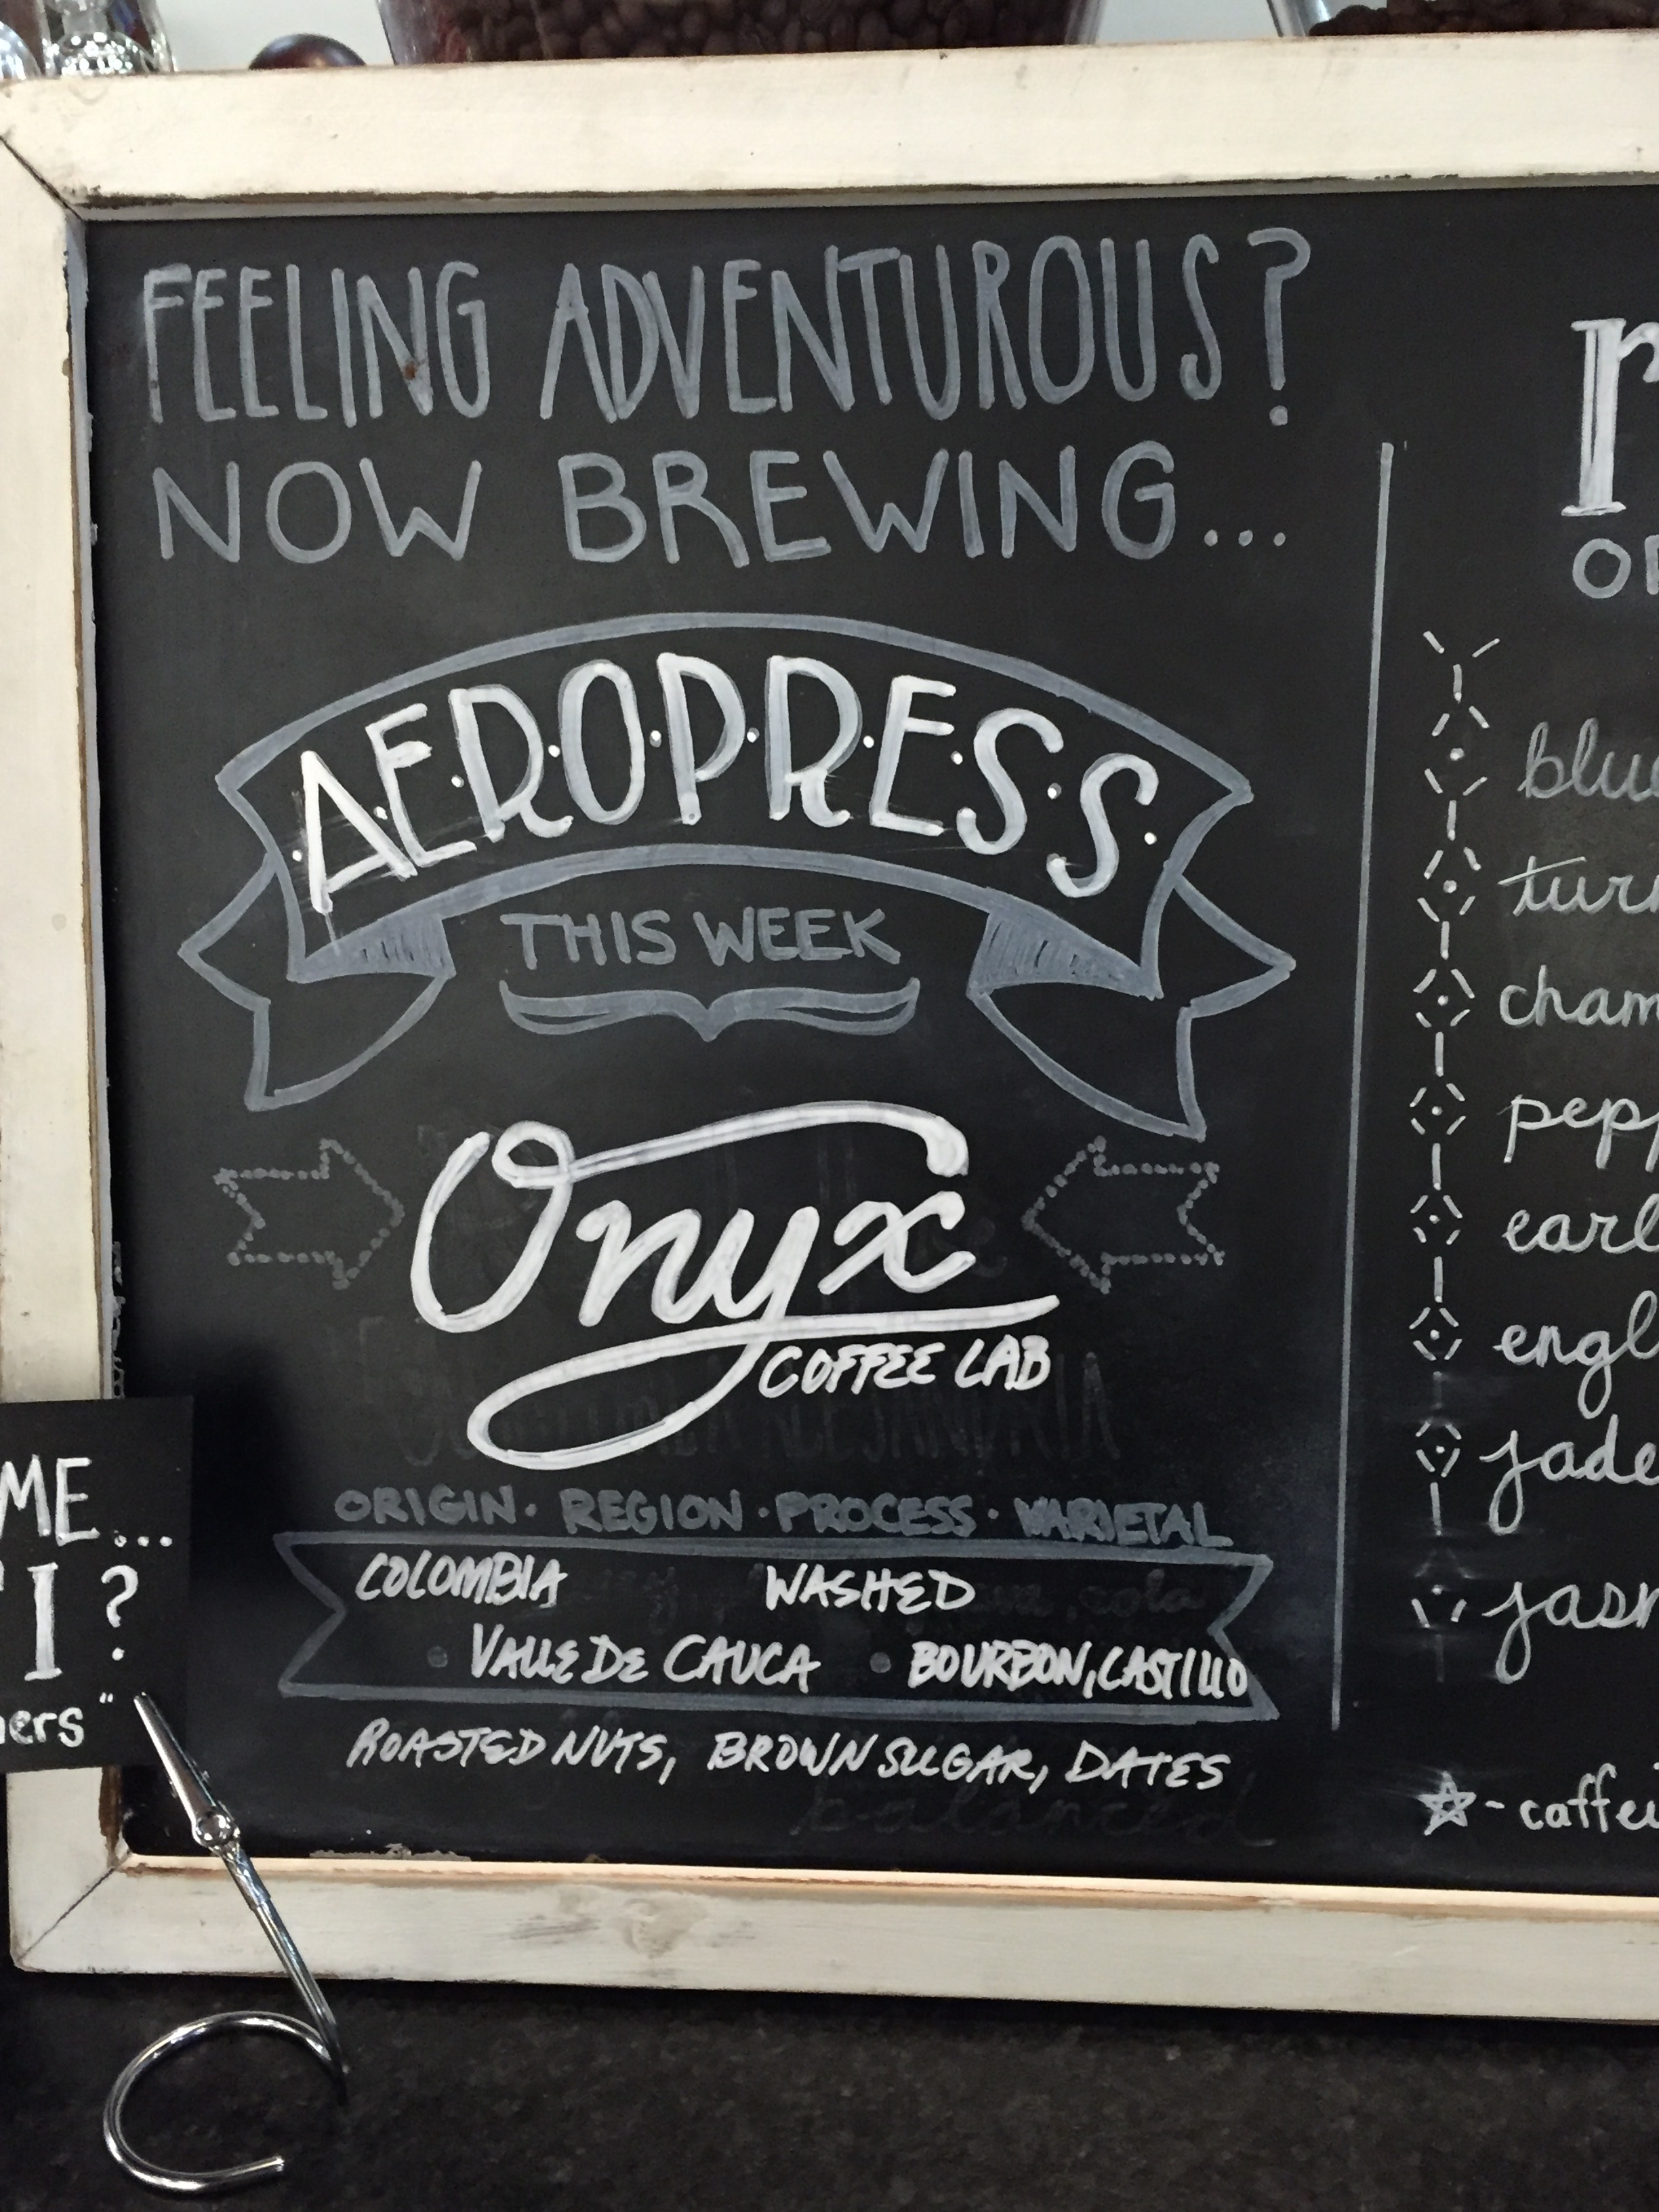 FEELING ADVENTUROUS?
NOW BREWING...
A·E·R·O·P·R·E·S·S
THIS WEEK
Onyx
COFFEE LAB
ORIGIN · REGION · PROCESS · VARIETAL
COLOMBIA WASHED
• VALLE DE CAUCA • BOURBON, CASTILLO
ROASTED NUTS, BROWN SUGAR, DATES
balanced
ME...
I?
ers"
r
blue
turm
cham
pepp
earl
engl
jade
jasm
☆-caffei